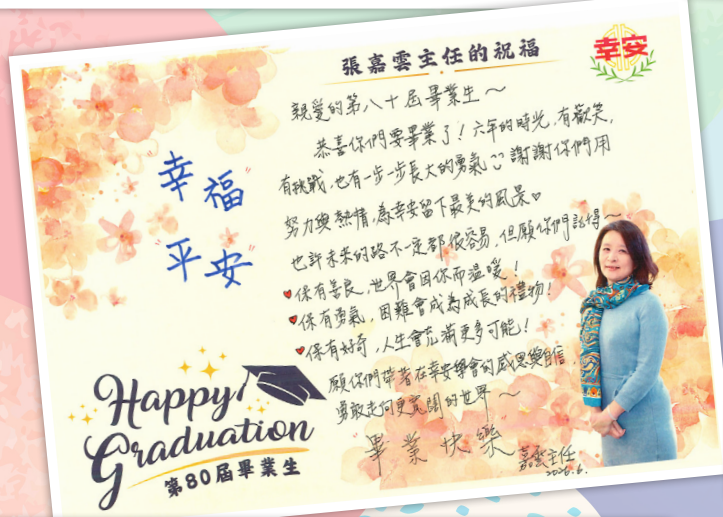 張嘉雲主任的祝福
幸安
親愛的第八十屆畢業生～
恭喜你們要畢業了！六年的時光，有歡笑，
有挑戰，也有一步一步長大的勇氣 謝謝你們用
努力與熱情，為幸安留下最美的風景♥
也許未來的路不一定都很容易，但願你們記得～
♥保有善良，世界會因你而溫暖！
♥保有勇氣，困難會成為成長的禮物！
♥保有好奇，人生會充滿更多可能！
願你們帶著在幸安學會的感恩與自信，
勇敢走向更寬闊的世界～
畢業快樂
嘉雲主任
2026.6.
"幸福"
"平安"
Happy
Graduation
第80屆畢業生